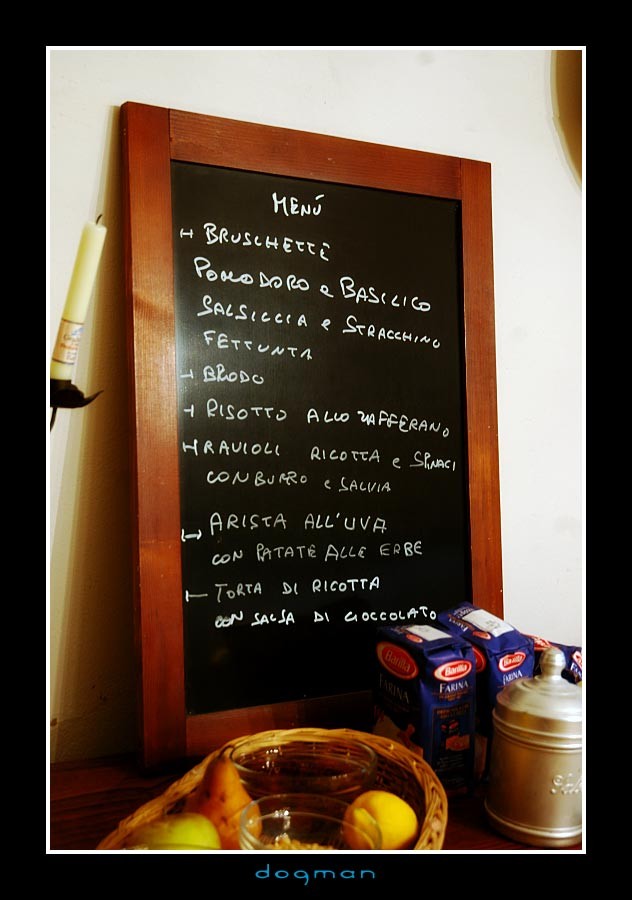 MENÚ
BRUSCHETTE
POMODORO e BASILICO
SALSICCIA e STRACCHINO
FETTUNTA
BRODO
RISOTTO ALLO ZAFFERANO
RAVIOLI RICOTTA e SPINACI
CON BURRO e SALVIA
ARISTA ALL'UVA
CON PATATE ALLE ERBE
TORTA DI RICOTTA
CON SALSA DI CIOCCOLATO
Barilla Barilla Barilla
FARINA FARINA FARINA
dogman